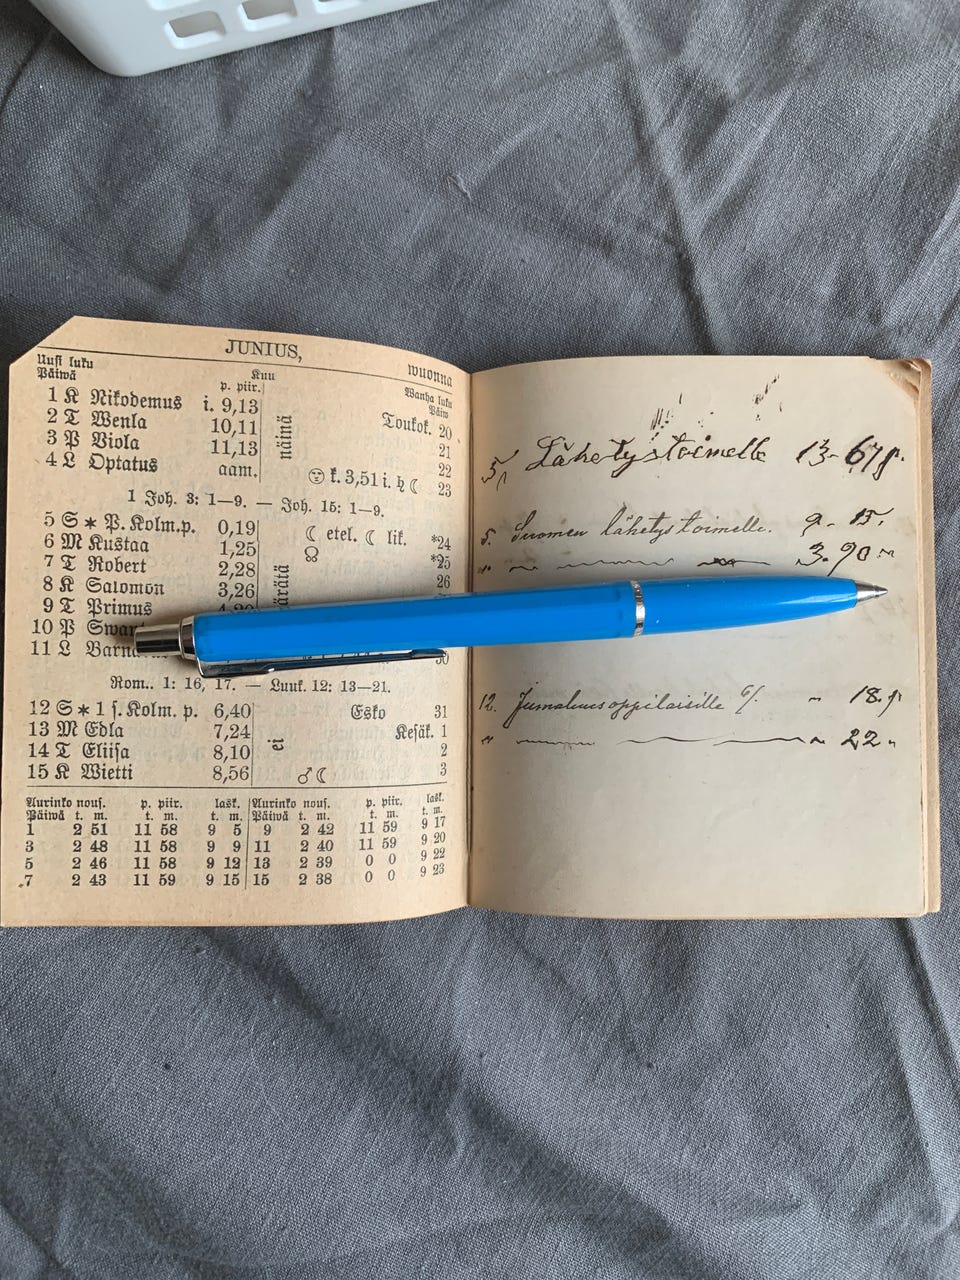 JUNIUS, wuonna
Uusi luku Kuu Wanha luku
Päiwä p. piir. Päiw
1 K Nikodemus i. 9,13 Toukok. 20
2 T Wenla 10,11 21
3 P Viola 11,13 22
4 L Optatus aam. k. 3,51 i. ♄ ☾ 23
näinä
1 Joh. 3: 1—9. — Joh. 15: 1—9.
5 S * P. Kolm.p. 0,19 ☾ etel. ☾ lik. *24
6 M Kustaa 1,25 ☊ *25
7 T Robert 2,28 26
8 K Salomon 3,26
9 T Primus
10 P
11 L 30
Rom.. 1: 16, 17. — Luuk. 12: 13—21.
12 S * 1 s. Kolm. p. 6,40 Esko 31
13 M Edla 7,24 Kesäk. 1
14 T Eliisa 8,10 2
15 K Wietti 8,56 ♂ ☾ 3
ei
Aurinko nous. p. piir. lask. Aurinko nous. p. piir. lask.
Päiwä t. m. t. m. t. m. t. m.
1 2 51 11 58 9 5 9 2 42 11 59 9 17
3 2 48 11 58 9 9 11 2 40 11 59 9 20
5 2 46 11 58 9 12 13 2 39 0 0 9 22
7 2 43 11 59 9 15 15 2 38 0 0 9 23
5 Lähetystoimelle 13- 67
5. Suomen lähetystoimelle. 9 - 15.
" 3.90 "
12. Jumaluusoppilaisille " 18.
" " 22 "